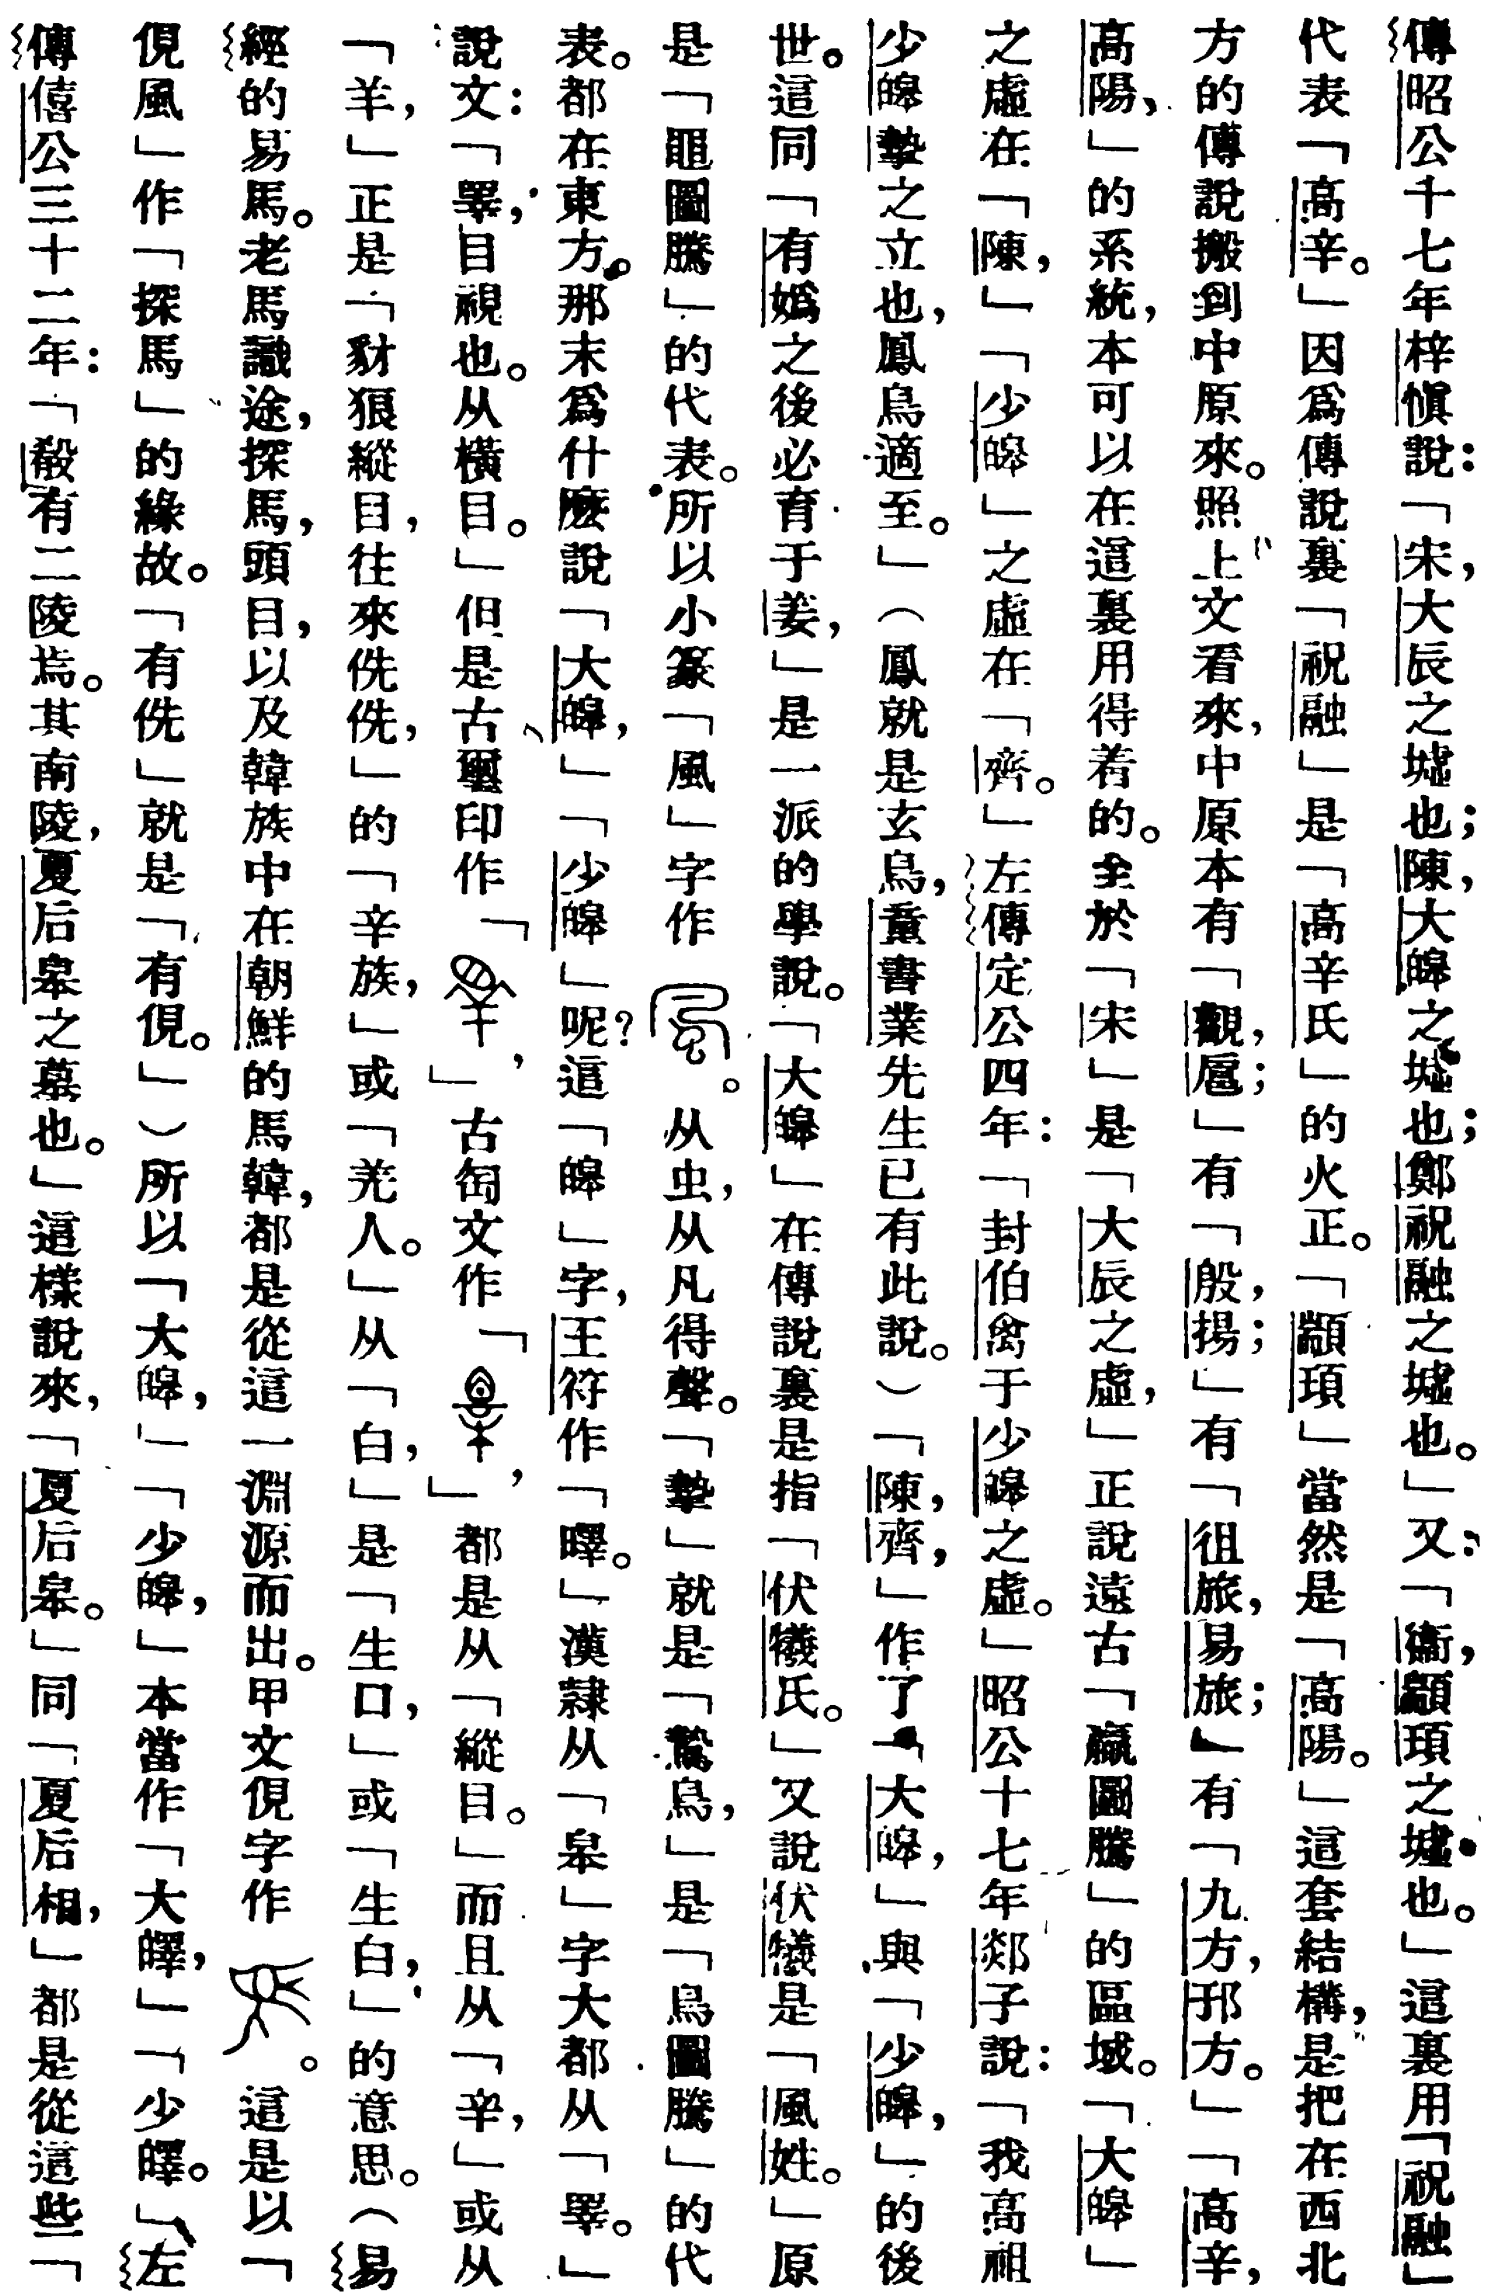 傳昭公十七年梓慎說：「宋，大辰之墟也；陳，大皞之墟也；鄭祝融之墟也。」又：「衞，顓頊之墟也。」這裏用「祝融」
代表「高辛。」因爲傳說裏「祝融」是「高辛氏」的火正。「顓頊」當然是「高陽。」這套結構，是把在西北
方的傳說搬到中原來。照上文看來，中原本有「觀，扈；」有「殷，揚；」有「徂旅，易旅；」有「九方，邘方。」「高辛，
高陽，」的系統，本可以在這裏用得着的。至於「宋」是「大辰之虛，」正說遠古「嬴圖騰」的區域。「大皞」
之虛在「陳，」「少皞」之虛在「齊。」左傳定公四年：「封伯禽于少皞之虛。」昭公十七年郯子說：「我高祖
少皞摯之立也，鳳鳥適至。」（鳳就是玄鳥，童書業先生已有此說。）「陳，齊，」作了「大皞，」與「少皞，」的後
世。這同「有嬀之後必育于姜，」是一派的學說。「大皞」在傳說裏是指「伏犧氏。」又說伏犧是「風姓。」原
是「黽圖騰」的代表。所以小篆「風」字作。从虫，从凡得聲。「摯」就是「鷙鳥，」是「鳥圖騰」的代
表。都在東方。那末爲什麽說「大皞，」「少皞」呢？這「皞」字，王符作「曎。」漢隸从「皋」字大都从「睪。」
說文：「睪，目視也。从橫目。」但是古璽印作「」，古匋文作「」，都是从「縱目。」而且从「辛，」或从
「羊，」正是「豺狼縱目，往來侁侁，」的「辛族，」或「羌人。」从「白，」是「生口，」或「生白，」的意思。（易
經的易馬。老馬識途，探馬，頭目，以及韓族中在朝鮮的馬韓，都是從這一淵源而出。甲文俔字作。這是以「
俔風」作「探馬」的緣故。「有侁」就是「有俔。」）所以「大皞，」「少皞，」本當作「大曎，」「少曎。」左
傳僖公三十二年：「殽有二陵焉。其南陵，夏后皋之墓也。」這樣說來，「夏后皋。」同「夏后相，」都是從這些「